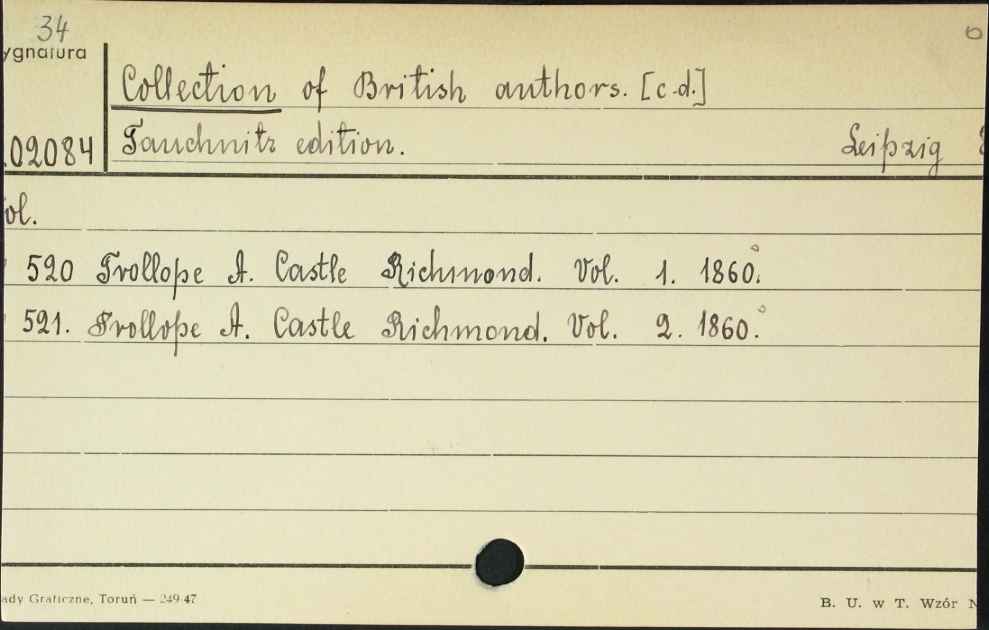 34
ygnatura
Collection of British authors. [c.d.]
.02084 Tauchnitz edition. Leipzig
ol.
520 Trollope A. Castle Richmond. Vol. 1. 1860.
521. Trollope A. Castle Richmond. Vol. 2. 1860.
ady Graficzne, Toruń — 249 47
B. U. w T. Wzór N